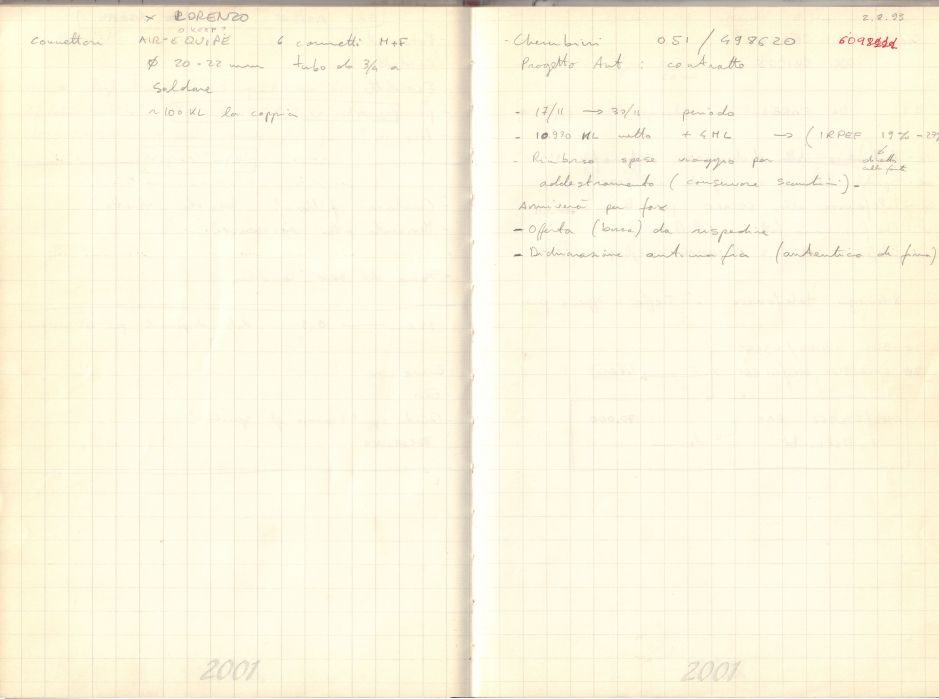 x LORENZO
connettori AIR-EQUIPE 6 connetti M+F
Ø 20-22 mm tubo da 3/4 a
saldare
~ 100 KL la coppia
2001
2.2.93
- Cherubini 051/498620
Progetto Ant : contratto
- 17/11 → 30/11 periodo
- 10.920 KL netto + 4ML → (IRPEF 19%
- Rimborso spese viaggio per
addestramento (conservare scontrini).
Arriverà per fax
- Offerta (busta) da rispedire
- Dichiarazione antimafia (autentica di firma)
2001